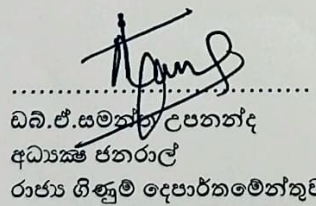 ඩබ්.ඒ.සමන්ත උපනන්ද
අධ්‍යක්ෂ ජනරාල්
රාජ්‍ය ගිණුම් දෙපාර්තමේන්තුව